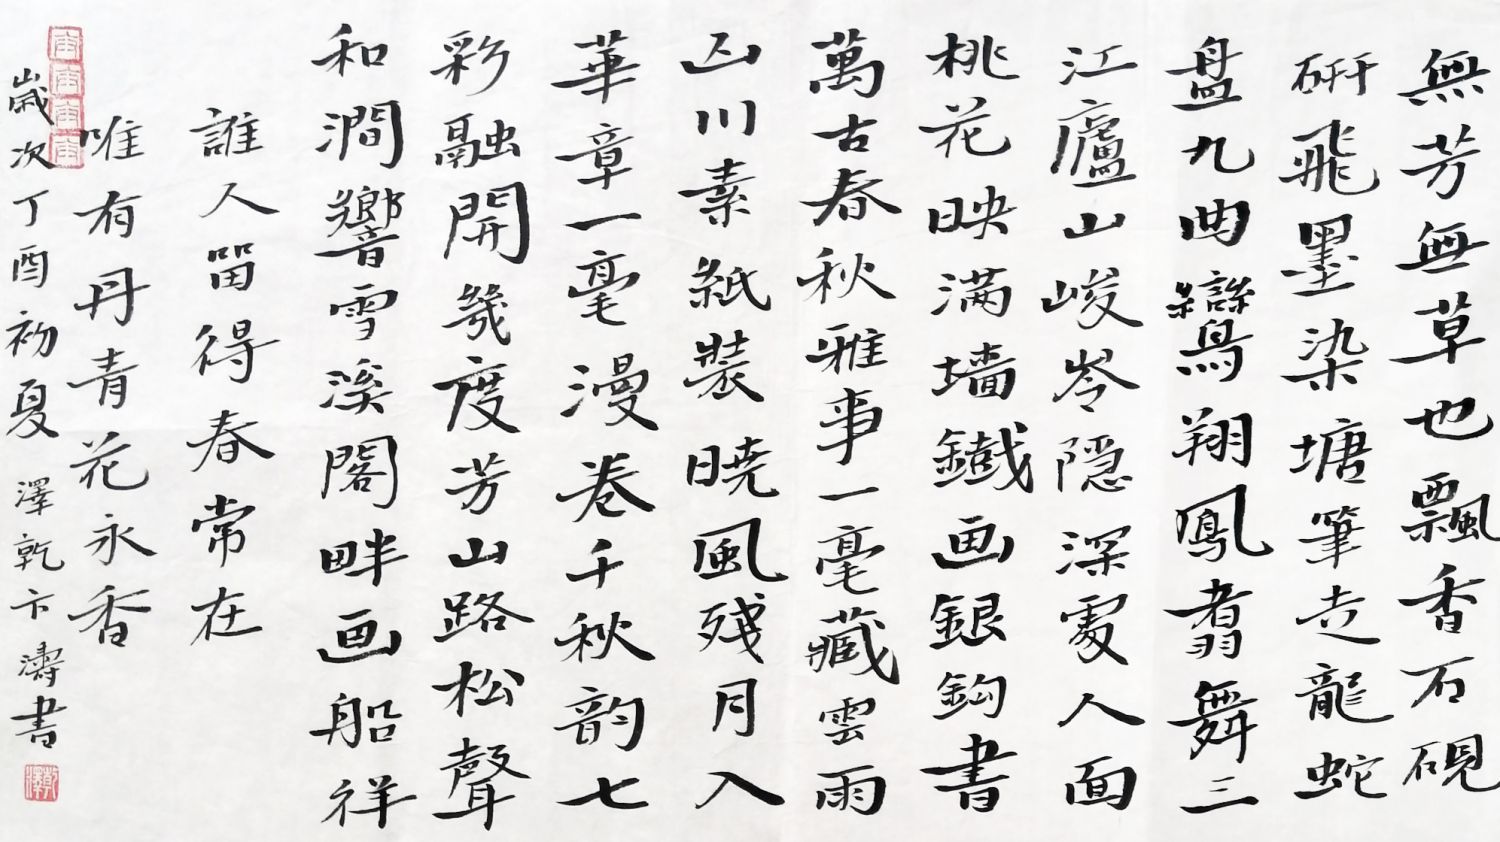 無芳無草也飄香石硯
研飛墨染塘筆走龍蛇
盤九曲鸞翔鳳翥舞三
江廬山峻岑隱深處人面
桃花映满墻鐵画銀鈎書
萬古春秋雅事一毫藏雲雨
山川素紙裝曉風残月入
華章一毫漫卷千秋韵七
彩融開幾度芳山路松聲
和澗響雪溪閣畔画船祥
誰人留得春常在
唯有丹青花永香
歲次丁酉初夏 澤乾卞濤書